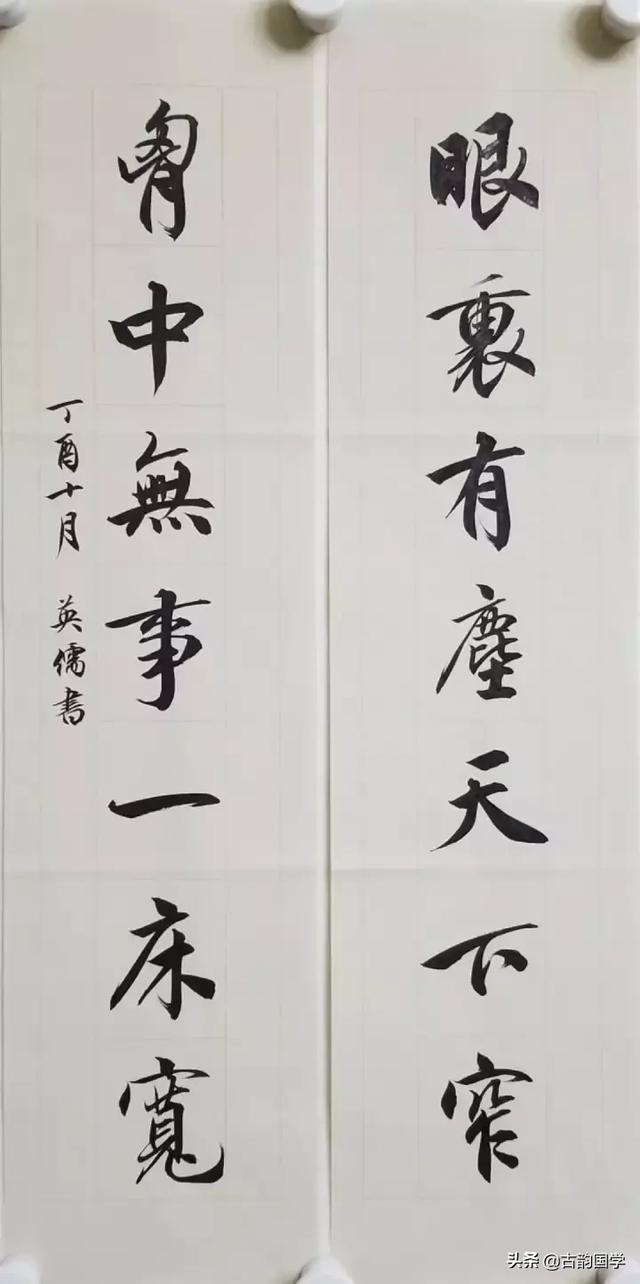 眼裏有塵天下窄
胷中無事一床寬
丁酉十月 英儒書
头条 @古韵国学